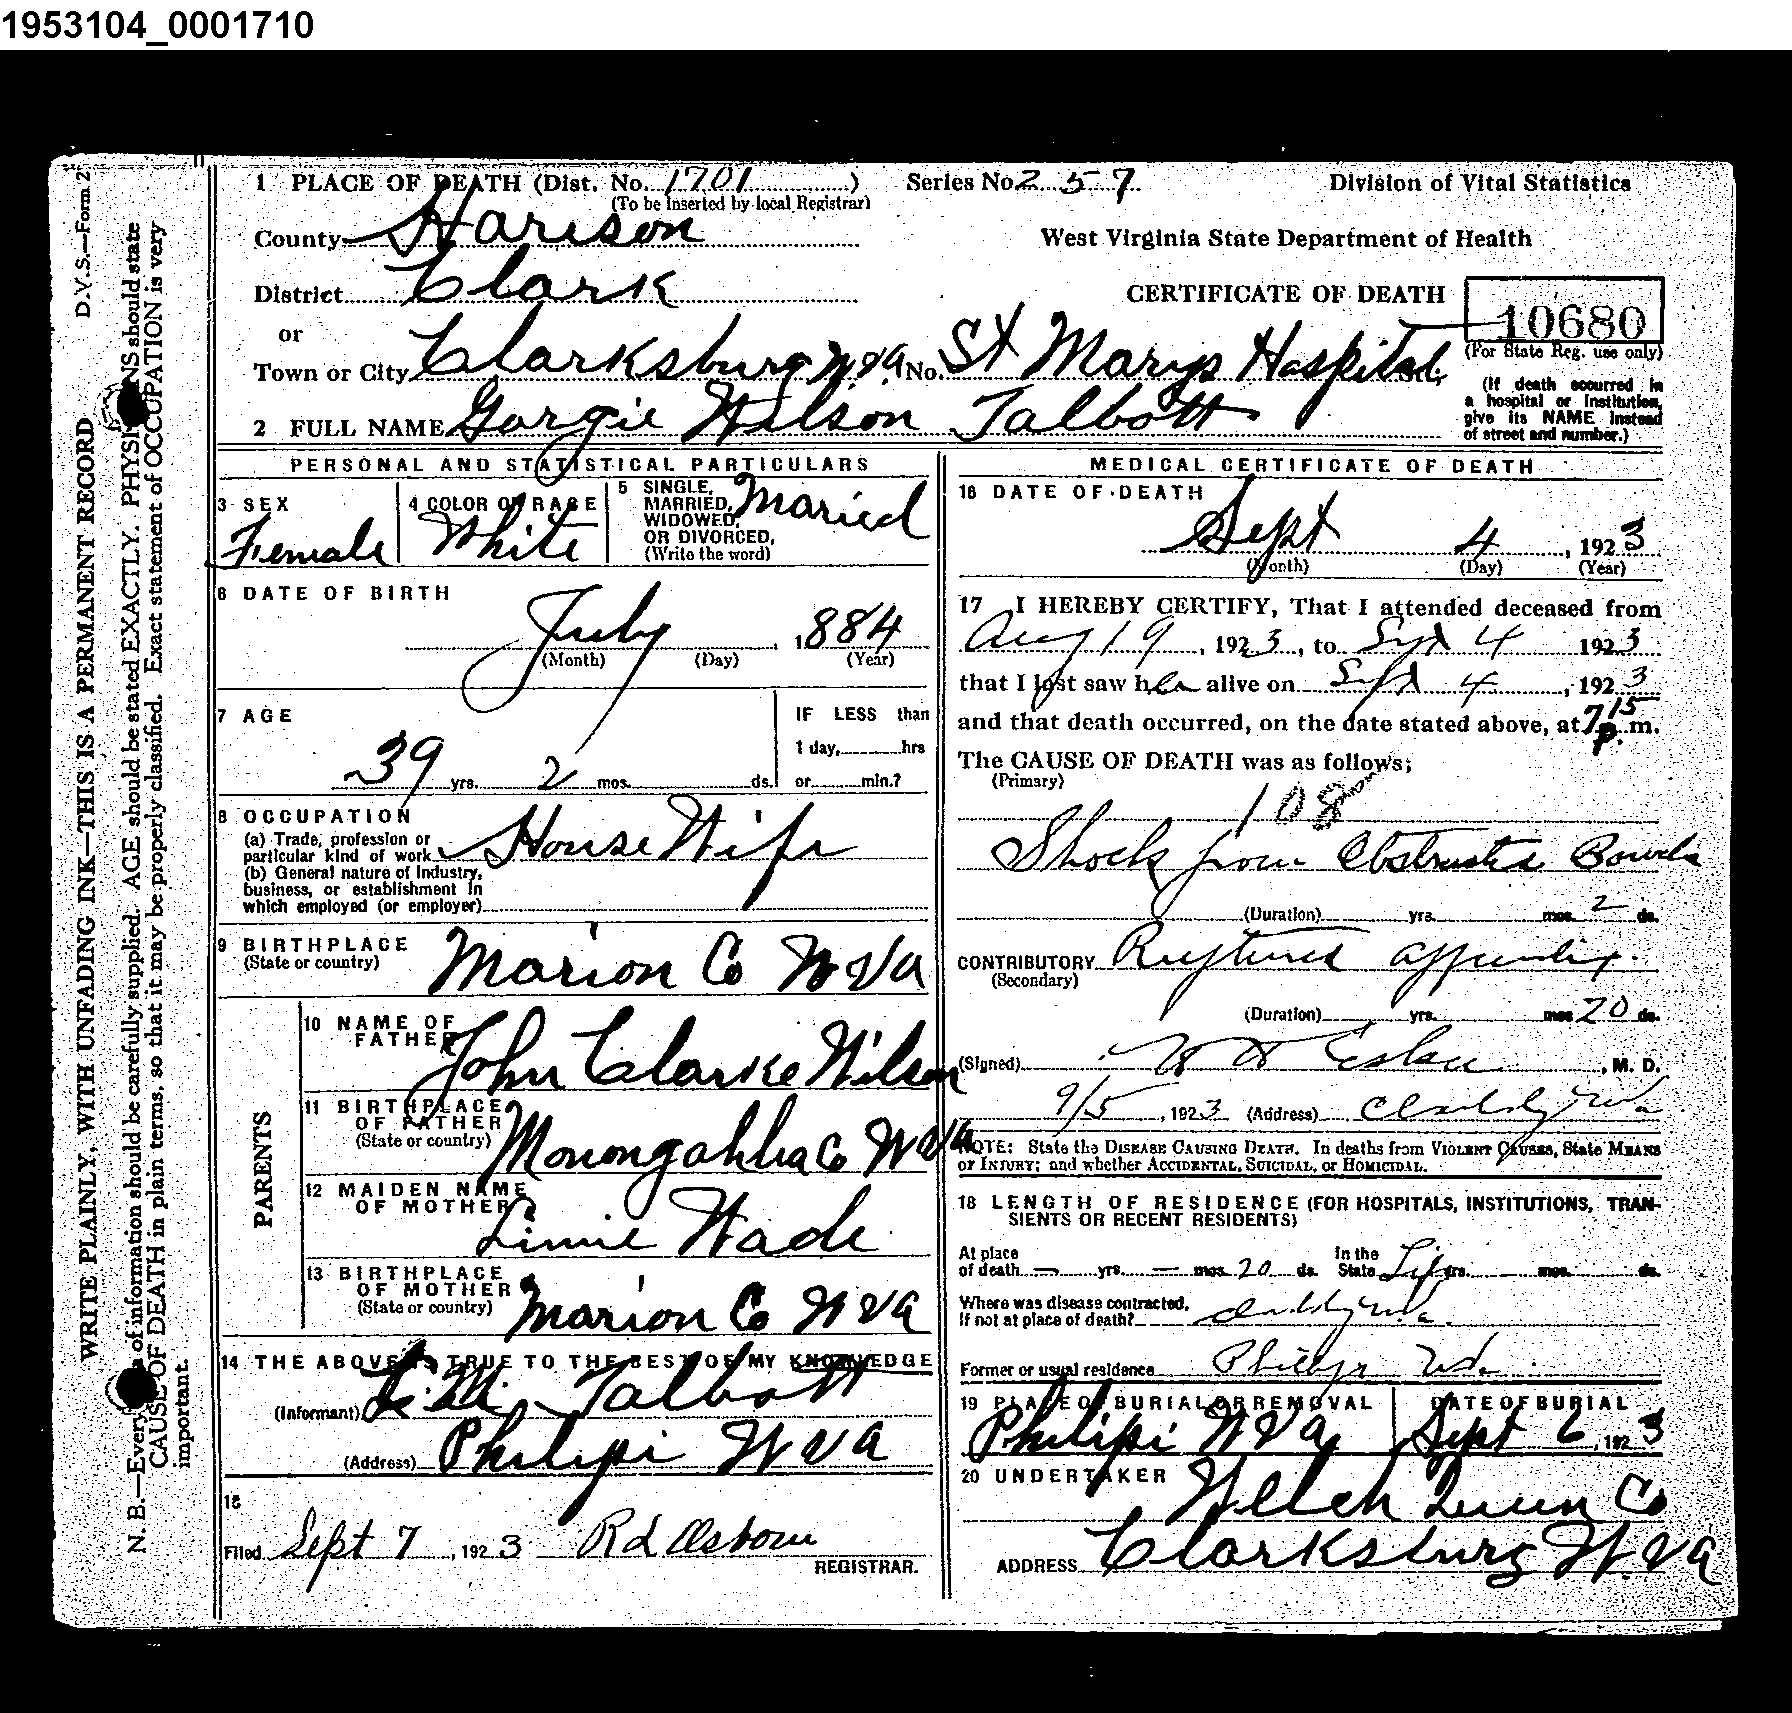 1953104_0001710
D.V.S.—Form 2
WRITE PLAINLY, WITH UNFADING INK—THIS IS A PERMANENT RECORD
N. B.—Every of information should be carefully supplied. AGE should be stated EXACTLY. PHYSI NS should state
CAUSE OF DEATH in plain terms, so that it may be properly classified. Exact statement of OCCUPATION is very
important.
1 PLACE OF DEATH (Dist. No. 1701) Series No 257 Division of Vital Statistics
(To be inserted by local Registrar)
County Harison West Virginia State Department of Health
District Clark CERTIFICATE OF DEATH 10680
or
Town or City Clarksburg W.Va No. St Marys Hospital (For State Reg. use only)
(If death occurred in
a hospital or institution,
give its NAME instead
of street and number.)
2 FULL NAME Gorgie Wilson Talbott
PERSONAL AND STATISTICAL PARTICULARS
3 SEX Female
4 COLOR OR RACE White
5 SINGLE, MARRIED, WIDOWED, OR DIVORCED, (Write the word) Maried
6 DATE OF BIRTH
July , 1884
(Month) (Day) (Year)
7 AGE
39 yrs. 2 mos. ds.
IF LESS than
1 day, hrs
or min.?
8 OCCUPATION
(a) Trade, profession or
particular kind of work House Wife
(b) General nature of Industry,
business, or establishment in
which employed (or employer)
9 BIRTHPLACE
(State or country) Marion Co W Va
PARENTS
10 NAME OF FATHER John Clarke Wilson
11 BIRTHPLACE OF FATHER
(State or country) Monongahlia Co W Va
12 MAIDEN NAME OF MOTHER Linnie Wade
13 BIRTHPLACE OF MOTHER
(State or country) Marion Co W Va
14 THE ABOVE IS TRUE TO THE BEST OF MY KNOWLEDGE
(Informant) Talbott
(Address) Philipi W Va
15
Filed Sept 7, 1923 Rd Osborn
REGISTRAR.
MEDICAL CERTIFICATE OF DEATH
16 DATE OF DEATH
Sept 4, 1923
(Month) (Day) (Year)
17 I HEREBY CERTIFY, That I attended deceased from
Aug 19, 1923, to Sept 4 1923
that I last saw her alive on Sept 4, 1923
and that death occurred, on the date stated above, at 7 15 p. m.
The CAUSE OF DEATH was as follows;
(Primary)
108
Shock from Obstructed Bowels
(Duration) yrs. mos. 2 ds.
CONTRIBUTORY Ruptured appendix
(Secondary)
(Duration) yrs. mos 20 ds.
(Signed) , M. D.
9/5, 1923 (Address)
NOTE: State the DISEASE CAUSING DEATH. In deaths from VIOLENT CAUSES, State MEANS
OF INJURY; and whether ACCIDENTAL, SUICIDAL, or HOMICIDAL.
18 LENGTH OF RESIDENCE (FOR HOSPITALS, INSTITUTIONS, TRAN-
SIENTS OR RECENT RESIDENTS)
At place of death — yrs. — mos. 20 ds. In the State Life yrs. mos. ds.
Where was disease contracted,
If not at place of death?
Former or usual residence
19 PLACE OF BURIAL OR REMOVAL DATE OF BURIAL
Philipi W Va Sept 6, 1923
20 UNDERTAKER
Welch Co
ADDRESS Clarksburg W. Va